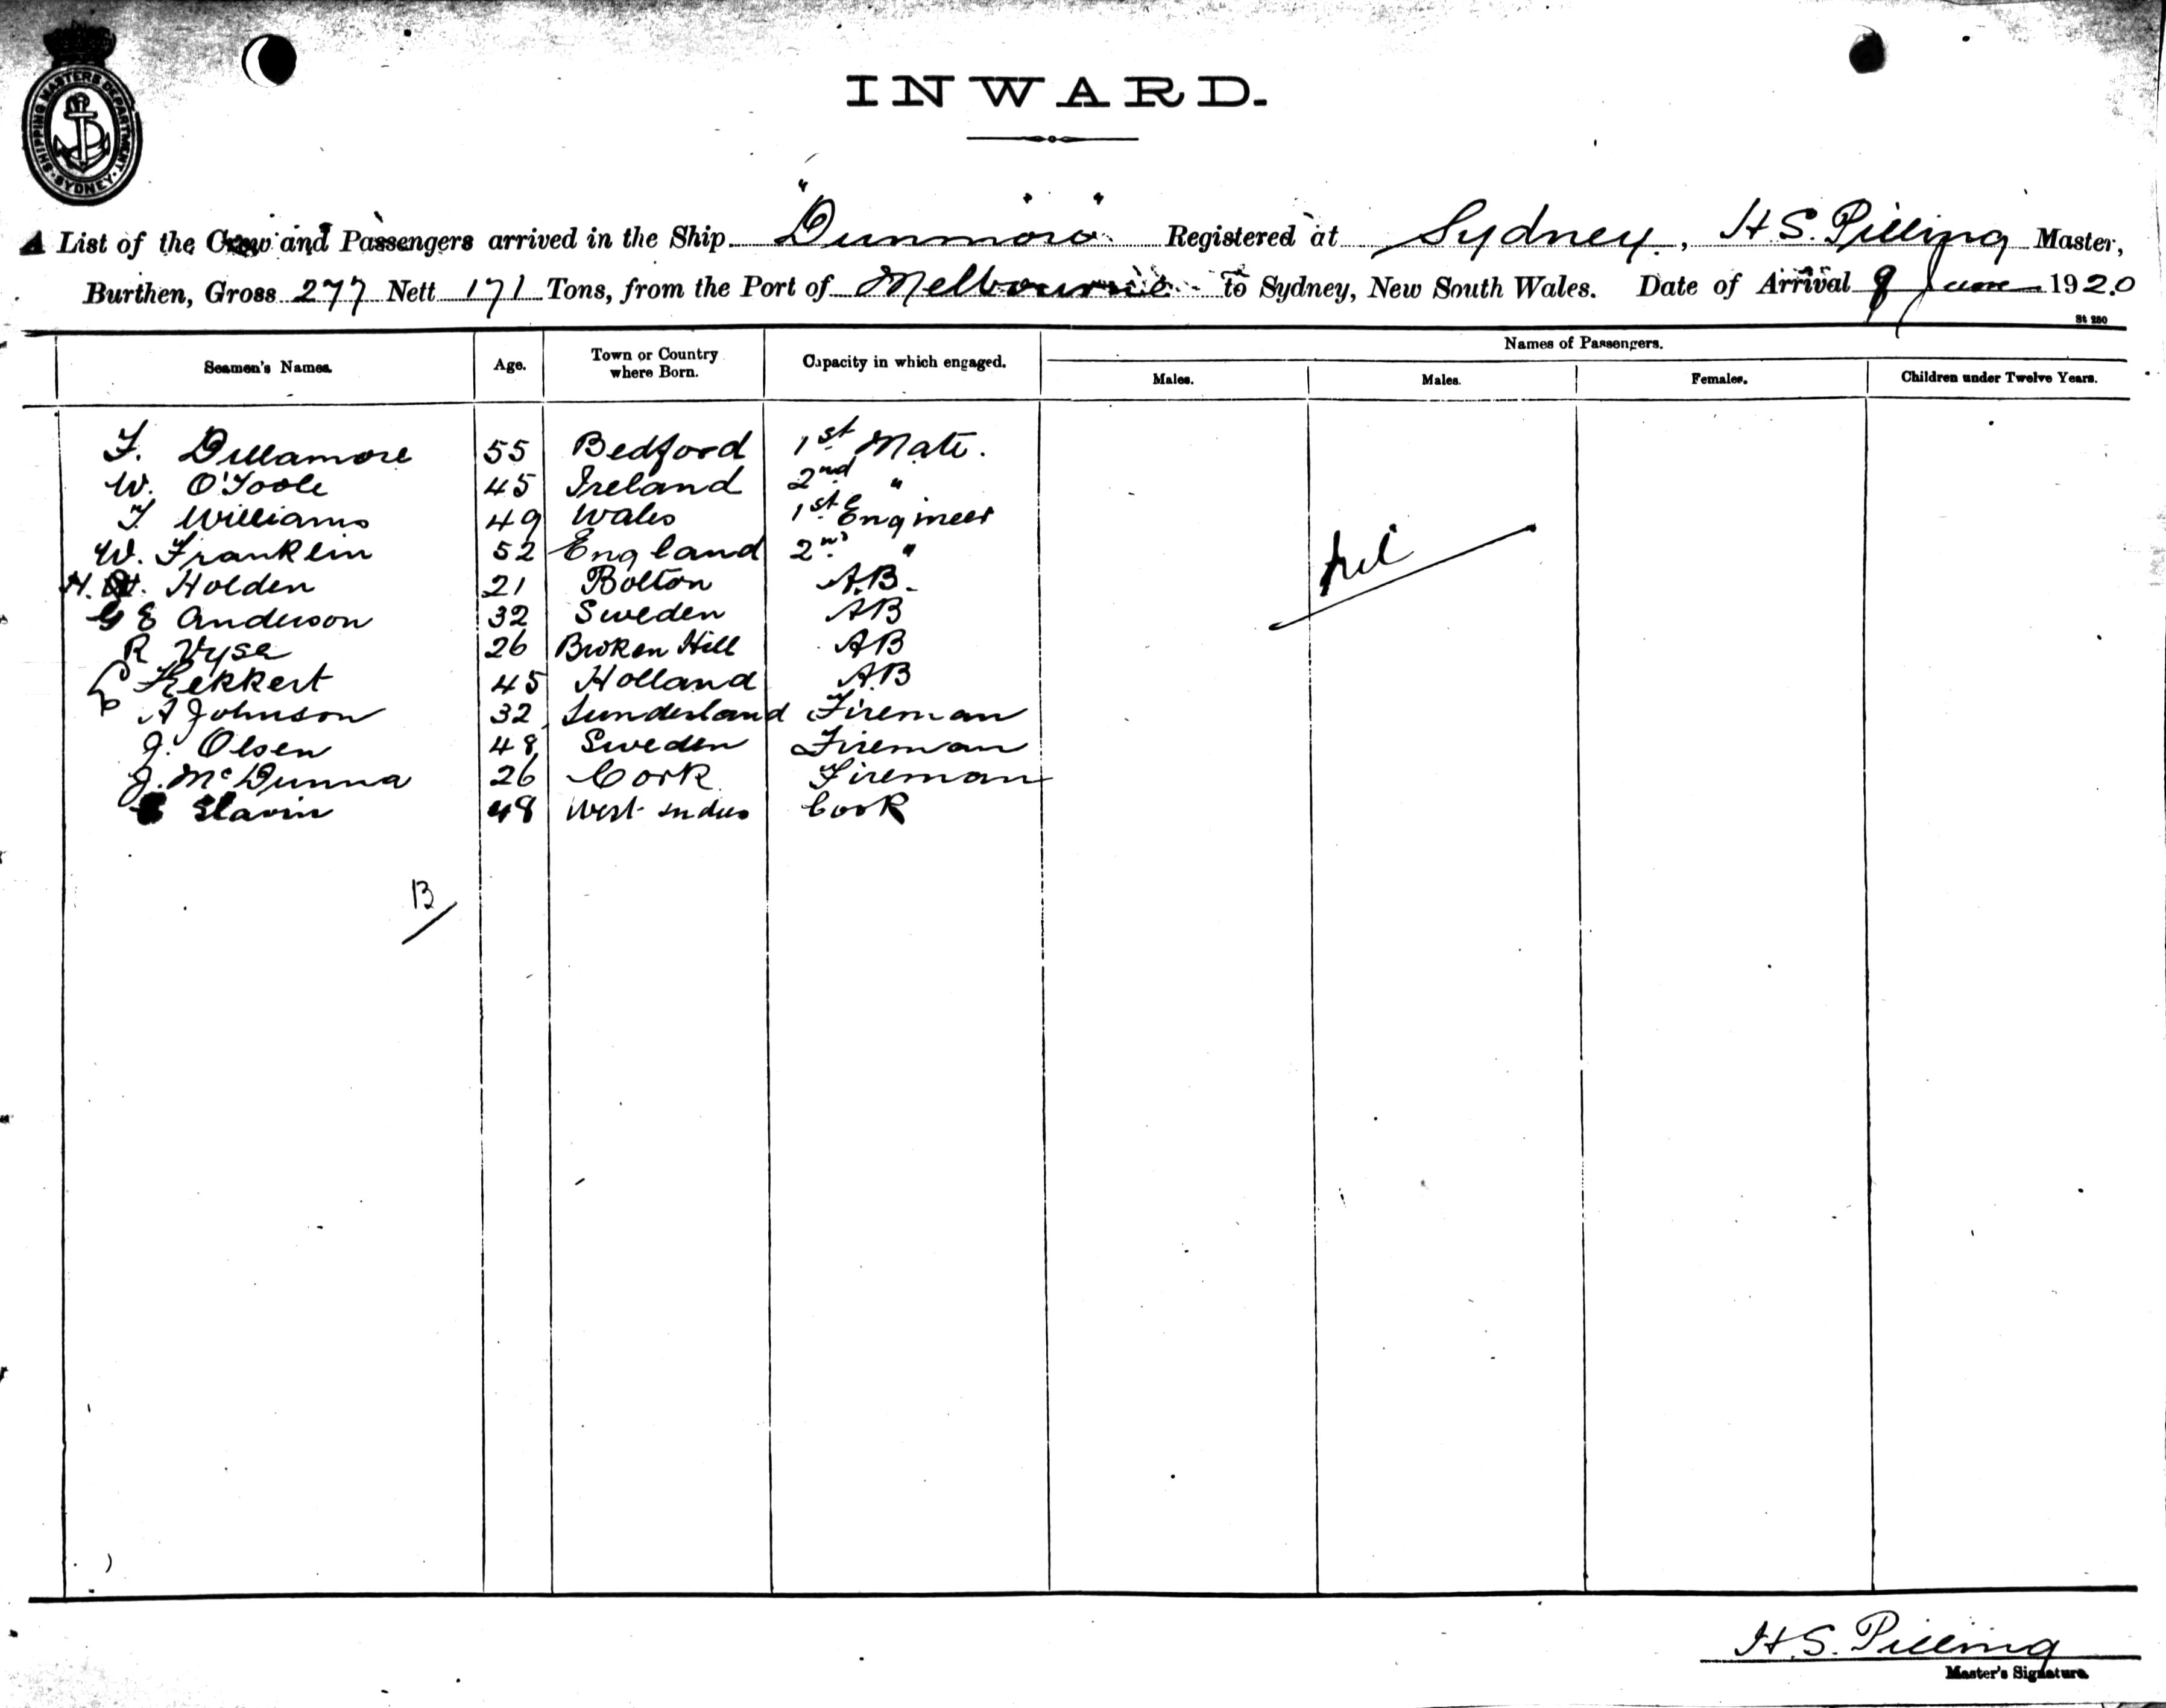 SHIPPING MASTERS DEPARTMENT
SYDNEY
INWARD.
A List of the Crew and Passengers arrived in the Ship "Dunmore" Registered at Sydney, H S. Pilling Master,
Burthen, Gross 277 Nett 171 Tons, from the Port of Melbourne to Sydney, New South Wales. Date of Arrival 9 June 1920
St 250
Seamen's Names. Age. Town or Country where Born. Capacity in which engaged. Names of Passengers.
Males. Males. Females. Children under Twelve Years.
F. Dillamore 55 Bedford 1st Mate.
W. O'Toole 45 Ireland 2nd "
T. Williams 49 Wales 1st Engineer
W. Franklin 52 England 2nd "
H. Holden 21 Bolton A.B.
G E Anderson 32 Sweden AB
R Vyse 26 Broken Hill AB
Kekkert 45 Holland A.B
A Johnson 32 Sunderland Fireman
J. Olsen 48 Sweden Fireman
J. McDunna 26 Cork Fireman
Slavin 48 West Indies Cook
nil
13
H.S. Pilling
Master's Signature